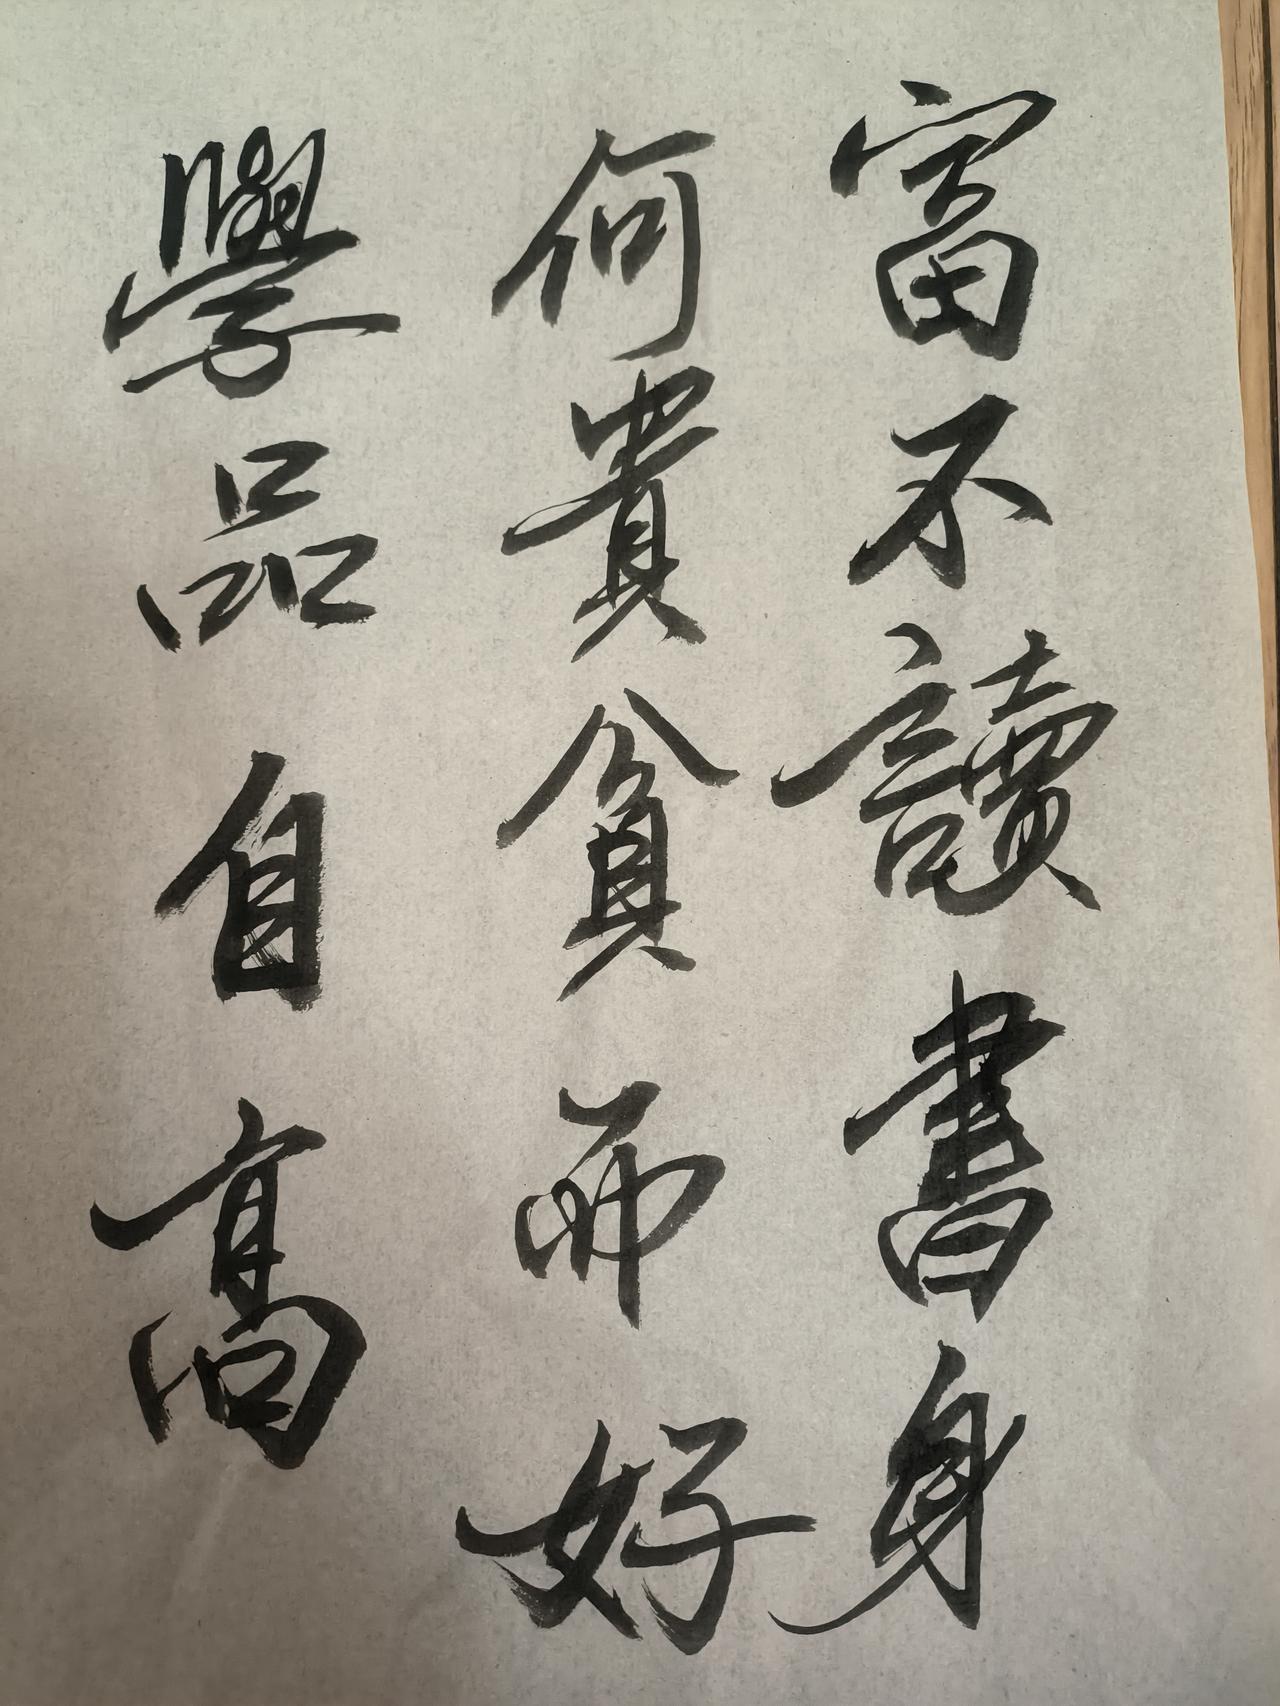 富不讀書身
何貴貧而好
學品自高